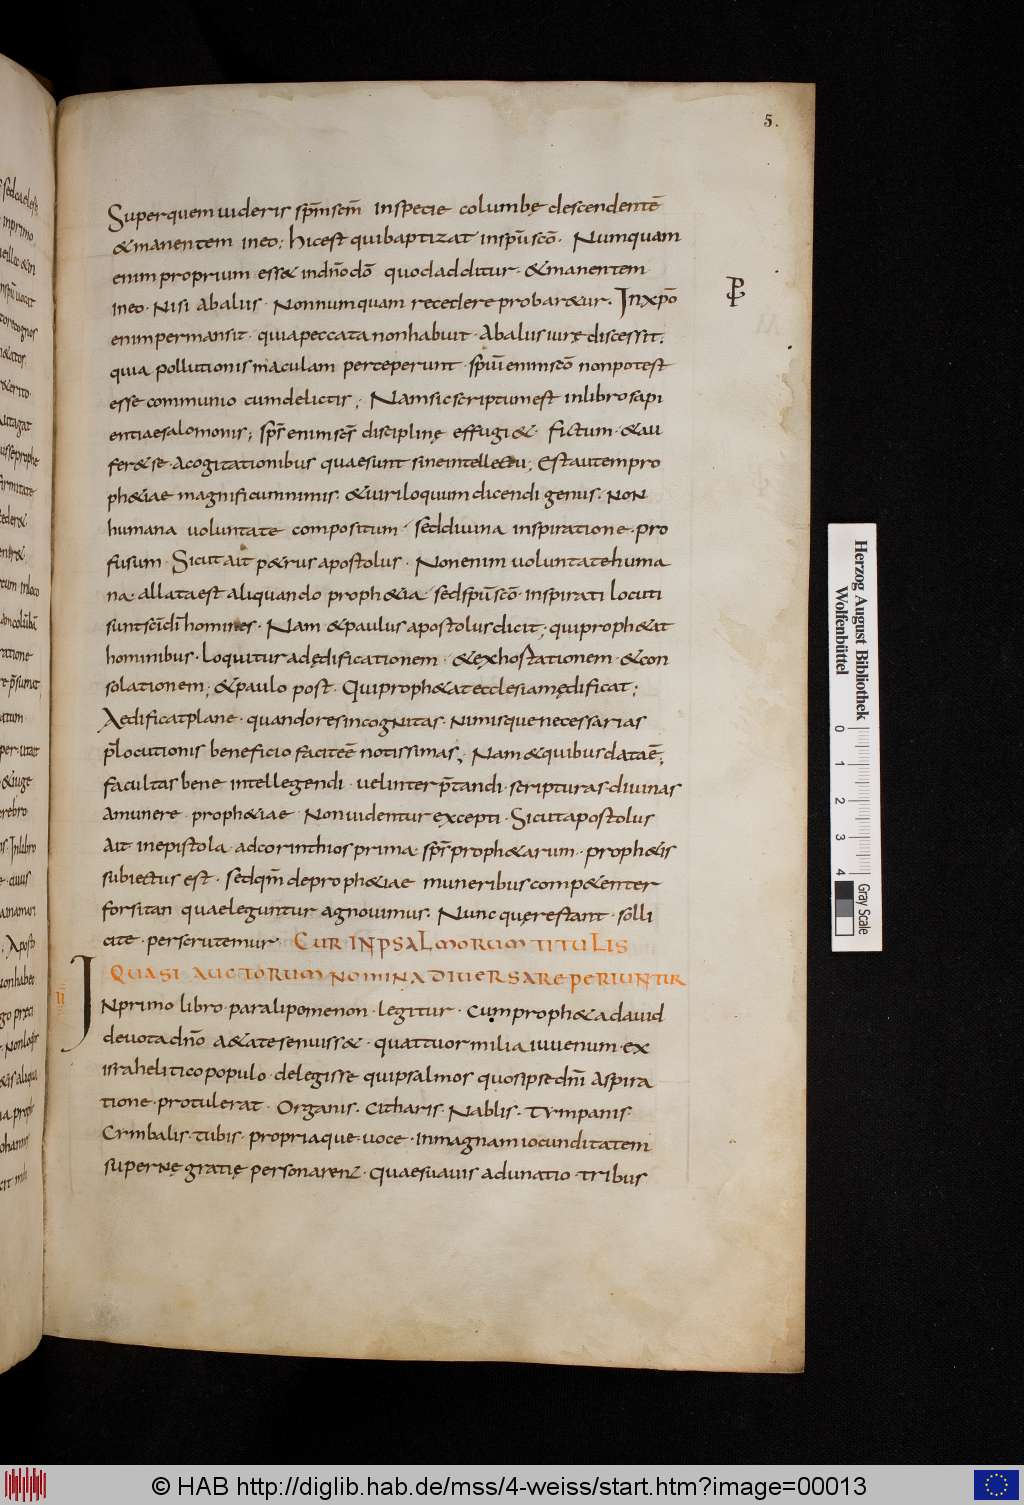 5.
Superquem uideris spm̄ scm̄ inspecie columbę descendentē
&manentem ineo; hicest quibaptizat inspū scō. Numquam
enim proprium ess& indn̄o dō quodadditur· &manentem
ineo· Nisi abalus· Nonnumquam recedere probar&ur. Inxp̄o
enim permansit· quiapeccata nonhabuit· Abalus iurę discessit.
quia pollutionis maculam perceperunt· spiūi enim scō nonpotest
esse communio cumdelictis; Namsicscriptumest inlibrosapi
entiaesalomonis; sps̄ enim scs̄ disciplinę effugi&· fictum· &au
fer&se· Acogitationibus quaesunt sineintellectu; Estautem pro
ph&iae magnificumnimis· &uiriloquum dicendi genus· NoN
humana uoluntate compositum· sed diuina inspiratione· pro
fusum· Sicut ait p&rus apostolus· Nonenim uoluntate huma
na· allataest aliquando proph&ia· sedspū scō· inspirati locuti
sunt scīdī homines· Nam &paulus apostolus dicit; quiproph&at
hominibus· loquitur adędificationem· &exhortationem &con
solationem; &paulo post· Quiproph&at ecclesiam ędificat;
Aedificat plane· quandores incogNitas· Nimisque necessarias
p̄locutionis beneficio faciteē notissimas; Nam &quibus dataē;
facultas bene intellegendi· uel interp̄tandi· scripturas diuinas
Amunere· proph&iae· Nonuidentur excepti· Sicut apostolus
Ait inepistola· adcorinthios prima· sps̄ proph&arum· proph&is
subiectus est· sedqm̄ deproph&iae muneribus comp&enter
forsitan quaeleguntur agnouimus· Nunc quęrestant· solli
cite· perscrutemur· CUR INPSALMORUM TITULIS
QUASI AUCTORUM NOMINA DIUERSA REPERIUNTUR
II
INprimo libro· paralipomenon· legitur· Cum proph&a dauid
deuota dn̄o a&ate senuiss&· quattuor milia iuuenum· ex
israhelitico populo· delegisse quipsalmos quosipse dn̄i Aspira
tione· protulerat· Organis· Citharis· Nablis· Tympanis·
Cymbalis· tubis· propriaque· uoce· Inmagnam iocunditatem
superNę gratię personarent· Quaesuauis adunatio· tribus
Herzog August Bibliothek
Wolfenbüttel
0 1 2 3 4
Gray Scale
© HAB http://diglib.hab.de/mss/4-weiss/start.htm?image=00013